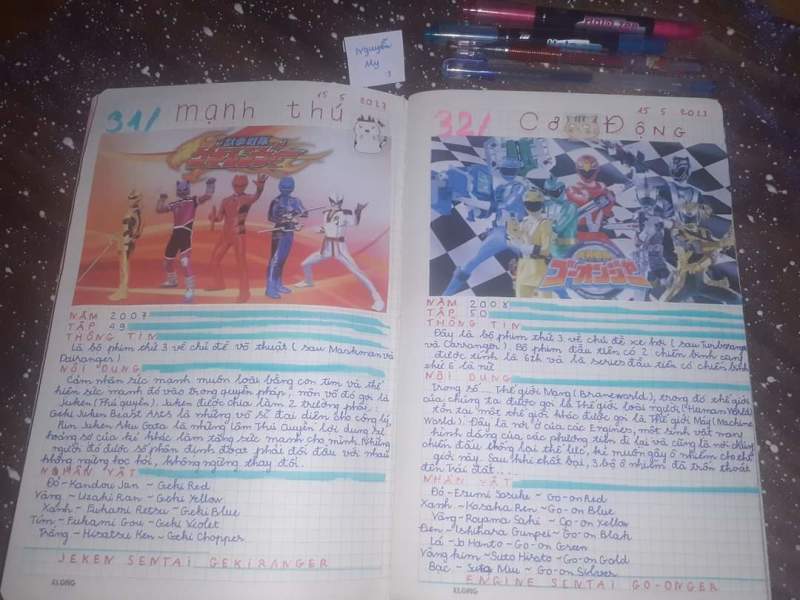 Nguyễn
My
31/ mạnh thú
15 5 2023
NĂM 2007
TẬP 49
THÔNG TIN
Là bộ phim thứ 3 về chủ đề võ thuật ( sau Maskman và
Dairanger )
NỘI DUNG
Cảm nhận sức mạnh muôn loài bằng con tim và thể
hiện sức mạnh đó vào trong quyền pháp, môn võ đó gọi là
Juken (Thú quyền). Juken được chia làm 2 trường phái:
Geki Juken Beast Arts là những võ sĩ đại diện cho công lý,
Rin Juken Aku Gata là những Lâm Thú Quyền lợi dụng sự
hoảng sợ của kẻ khác làm tăng sức mạnh cho mình. Những
người đó được số phận định đoạt phải đối đầu với nhau
không ngừng học hỏi, không ngừng thay đổi..
NHÂN VẬT
Đỏ - Kandou Jan ~ Geki Red
Vàng - Uzaki Ran ~ Geki Yellow
Xanh - Fukami Retsu ~ Geki Blue
Tím - Fukami Gou ~ Geki Violet
Trắng - Hisatsu Ken ~ Geki Chopper
JEKEN SENTAI GEKIRANGER
KLONG
32/ Cơ ĐỘNG
15 5 2023
ゴーオンジャー
NĂM 2008
TẬP 50
THÔNG TIN
Đây là bộ phim thứ 3 về chủ đề xe hơi ( sau Turboranger
và Carranger ). Bộ phim đầu tiên có 2 chiến binh cùng
được tính là 6th và là series đầu tiên có chiến binh
thứ 6 là nữ
NỘI DUNG
Trong số thế giới Mạng (Braneworld), trong đó thế giới
của chúng ta được gọi là Thế giới loài người ("Human World)
tồn tại một thế giới khác được gọi là Thế giới Máy (Machine
World). Đây là nơi ở của các Enginer, một sinh vật mang
hình dáng của các phương tiện đi lại và cũng là nơi
chiến đấu chống lại thế lực, kẻ muốn gây ô nhiễm cho thế
giới này. Sau khi thất bại, 3 bộ ô nhiễm đã trốn thoát
đến trái đất..
NHÂN VẬT
Đỏ - Esumi Sosuke ~ Go-on Red
Xanh - Kosaka Ren ~ Go-on Blue
Vàng - Royama Saki ~ Go-on Yellow
Đen - Ishihara Gunpei ~ Go-on Blak
Lá - Jo Hanto ~ Go-on Green
Vàng kim - Suto Hiroto ~ Go-on Gold
Bạc - Suto Miu ~ Go-on Silver
ENGINE SENTAI GO-ONGER
KLONG